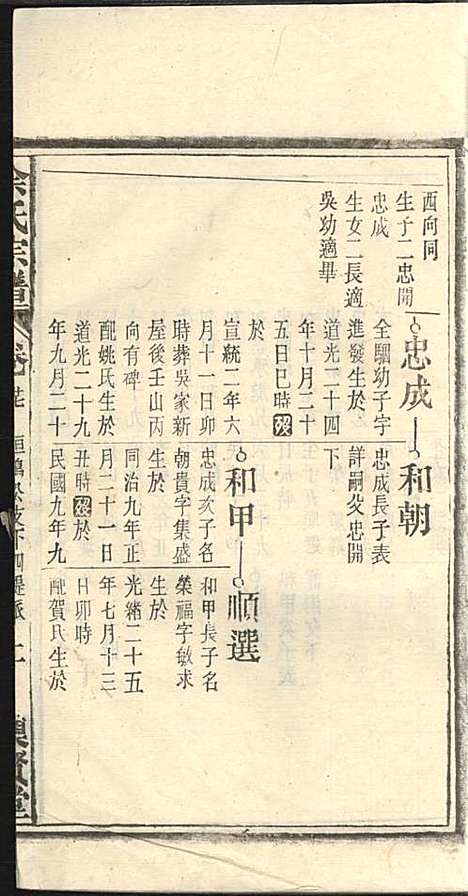 西向同
生子二忠開
忠成
生女二長適
吳幼適畢
忠成
全驷幼子字
進發生於
道光二十四
年十月二十
五日巳時歿
於
宣統二年六
月十一日卯
時葬吳家新
屋後壬山丙
向有碑
配姚氏生於
道光二十九
年九月二十
和朝
忠成長子表
詳嗣父忠開
下
和甲
忠成次子名
朝貴字集盛
生於
同治九年正
月二十一日
丑時歿於
民國九年九
順選
和甲長子名
榮福字敏求
生於
光緒二十五
年七月十三
日卯時
配賀氏生於
氏宗譜
卷